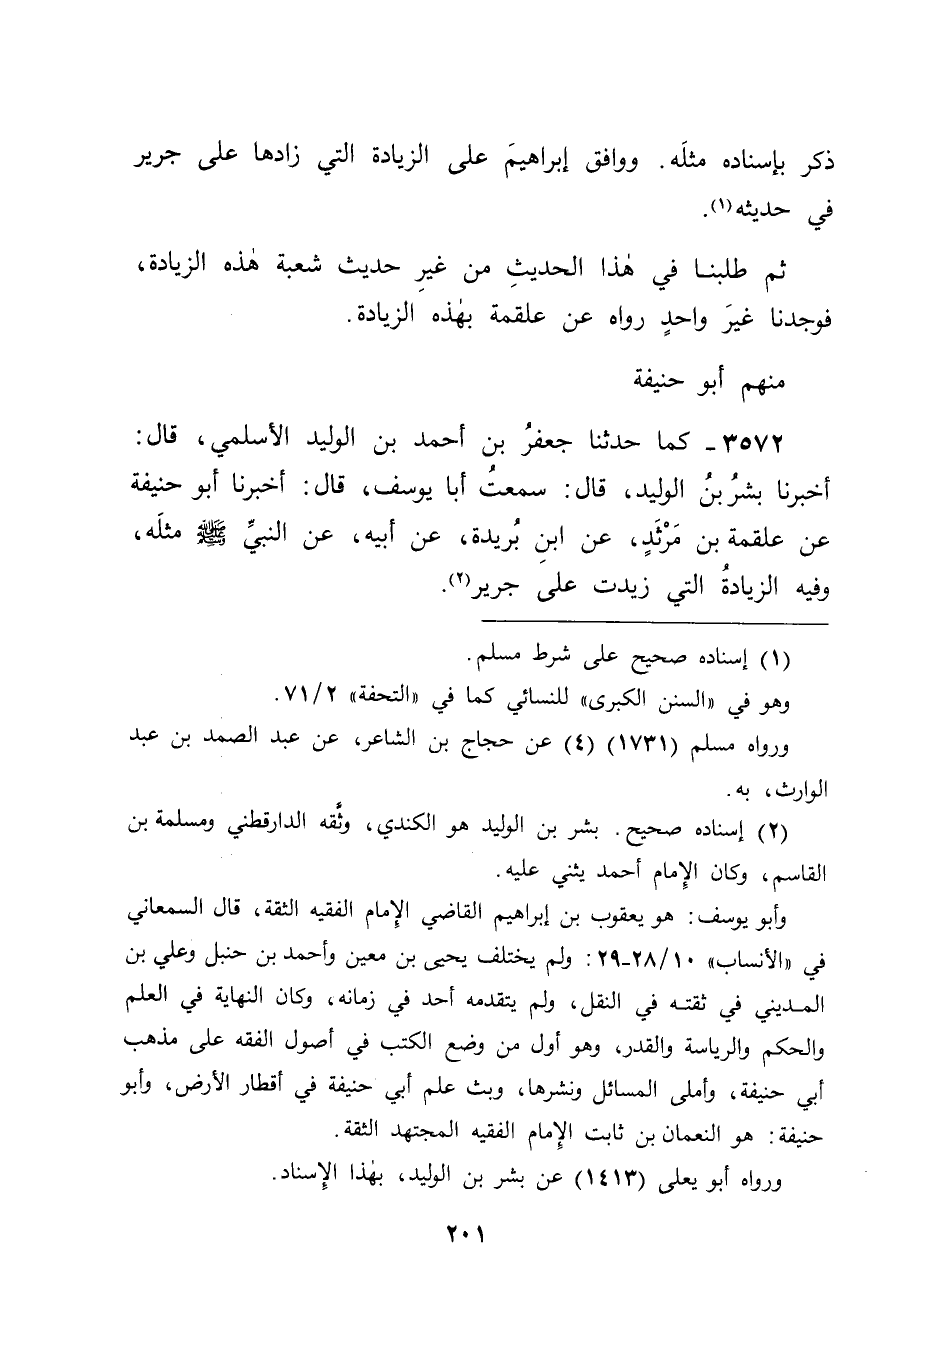 ذكر بإسناده مثلَه. ووافق إبراهيمَ على الزيادة التي زادها على جرير
في حديثه(١).
ثم طلبنا في هٰذا الحديثِ من غيرِ حديث شعبة هٰذه الزيادة،
فوجدنا غيرَ واحدٍ رواه عن علقمة بهٰذه الزيادة.
منهم أبو حنيفة
٣٥٧٢ـ كما حدثنا جعفرُ بن أحمد بن الوليد الأسلمي، قال:
أخبرنا بشرُ بنُ الوليد، قال: سمعتُ أبا يوسف، قال: أخبرنا أبو حنيفة
عن علقمة بن مَرْثَدٍ، عن ابنِ بُريدة، عن أبيه، عن النبيِّ ﷺ مثلَه،
وفيه الزيادةُ التي زيدت على جرير(٢).
(١) إسناده صحيح على شرط مسلم.
وهو في «السنن الكبرى» للنسائي كما في «التحفة» ٧١/٢.
ورواه مسلم (١٧٣١) (٤) عن حجاج بن الشاعر، عن عبد الصمد بن عبد
الوارث، به.
(٢) إسناده صحيح. بشر بن الوليد هو الكندي، وثَّقه الدارقطني ومسلمة بن
القاسم، وكان الإمام أحمد يثني عليه.
وأبو يوسف: هو يعقوب بن إبراهيم القاضي الإمام الفقيه الثقة، قال السمعاني
في «الأنساب» ٢٨/١٠ـ٢٩: ولم يختلف يحيى بن معين وأحمد بن حنبل وعلي بن
المديني في ثقته في النقل، ولم يتقدمه أحد في زمانه، وكان النهاية في العلم
والحكم والرياسة والقدر، وهو أول من وضع الكتب في أصول الفقه على مذهب
أبي حنيفة، وأملى المسائل ونشرها، وبث علم أبي حنيفة في أقطار الأرض، وأبو
حنيفة: هو النعمان بن ثابت الإمام الفقيه المجتهد الثقة.
ورواه أبو يعلى (١٤١٣) عن بشر بن الوليد، بهٰذا الإسناد.
٢٠١